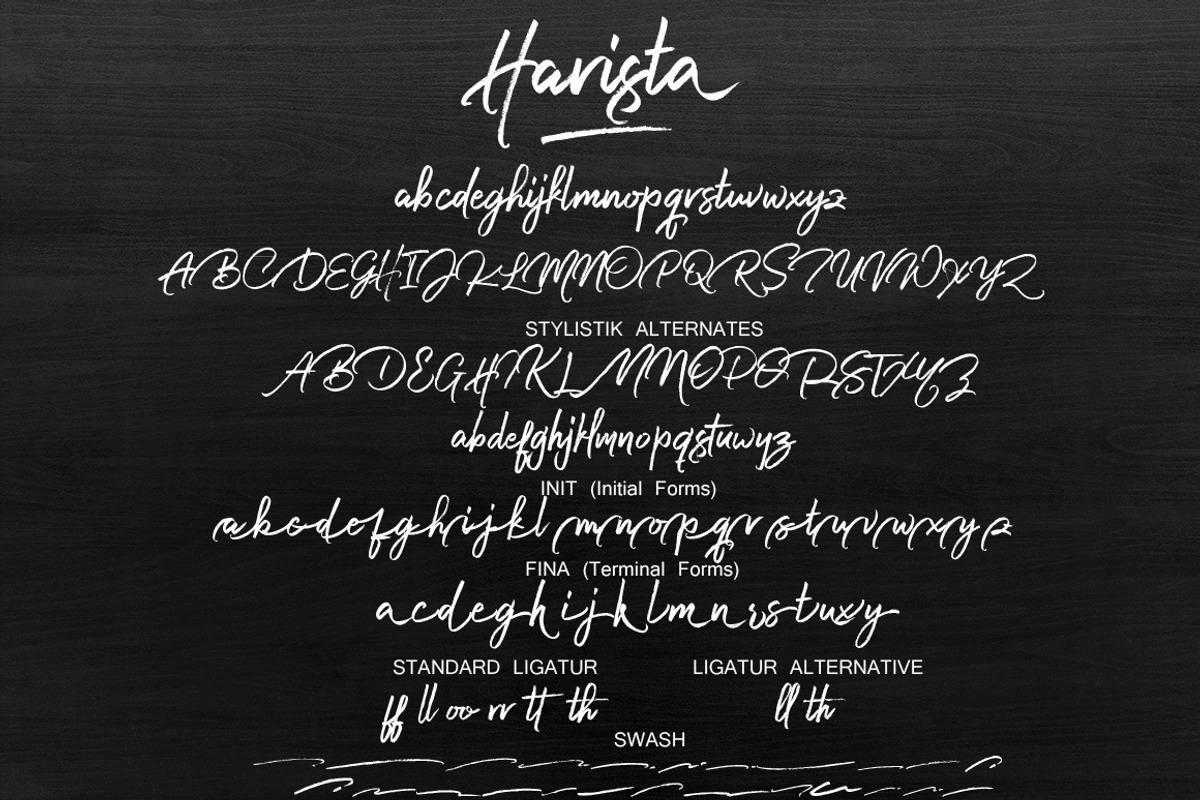 Harista
abcdeghijklmnopqrstuvwxyz
ABCDEGHIJKLMNOPQRSTUVWXYZ
STYLISTIK ALTERNATES
ABDEGHIKLMNOPQRSTXYZ
abdefghjklmnopqstuwyz
INIT (Initial Forms)
abcdefghijklmnopqrstuvwxyz
FINA (Terminal Forms)
acdeghijklmnrstuxy
STANDARD LIGATUR LIGATUR ALTERNATIVE
ff ll oo rr tt th ll th
SWASH